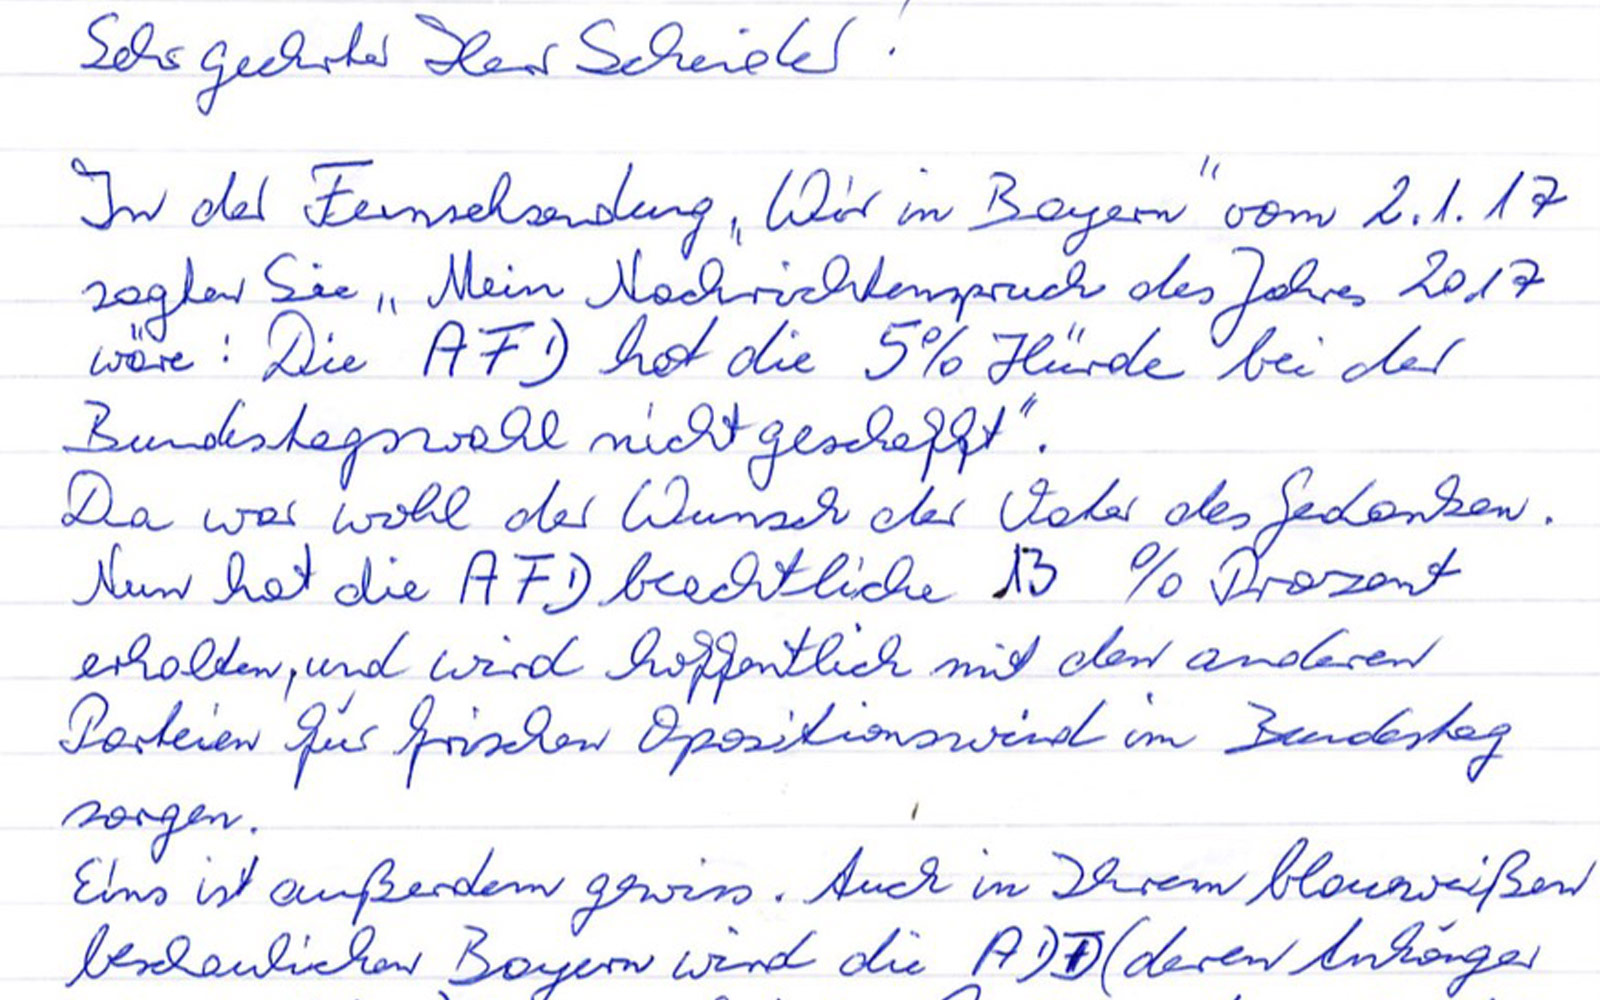 Sehr geehrter Herr Scheider!
In der Fernsehsendung „Wir in Bayern" vom 2.1.17
sagten Sie „Mein Nachrichtenspruch des Jahres 2017
wäre: Die AFD hat die 5% Hürde bei der
Bundestagswahl nicht geschafft".
Da war wohl der Wunsch der Vater des Gedanken.
Nun hat die AFD beachtliche 13 % Prozent
erhalten, und wird hoffentlich mit den anderen
Parteien für frischen Opositionswind im Bundestag
sorgen.
Eins ist außerdem gewiss. Auch in Ihrem blauweißen
beschaulichen Bayern wird die AFD (deren Anhänger